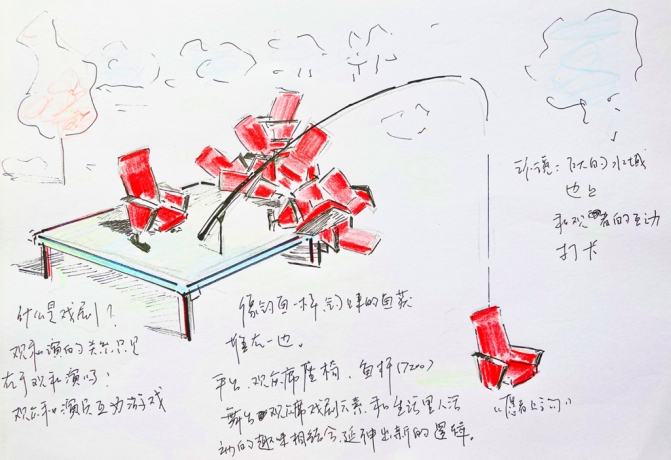 环境：巨大的水域
也上
和观者的互动
打卡
什么是戏剧？
观和演的关系只是
在于观和演吗？
观众和演员互动游戏
像钓鱼一样，钓上来的鱼获
堆在一起。
平台、观众席座椅、鱼杆(7200)
舞台 观众席戏剧元素，和生活里人活
动的趣味相结合，延伸出新的逻辑。
“愿者上钩”